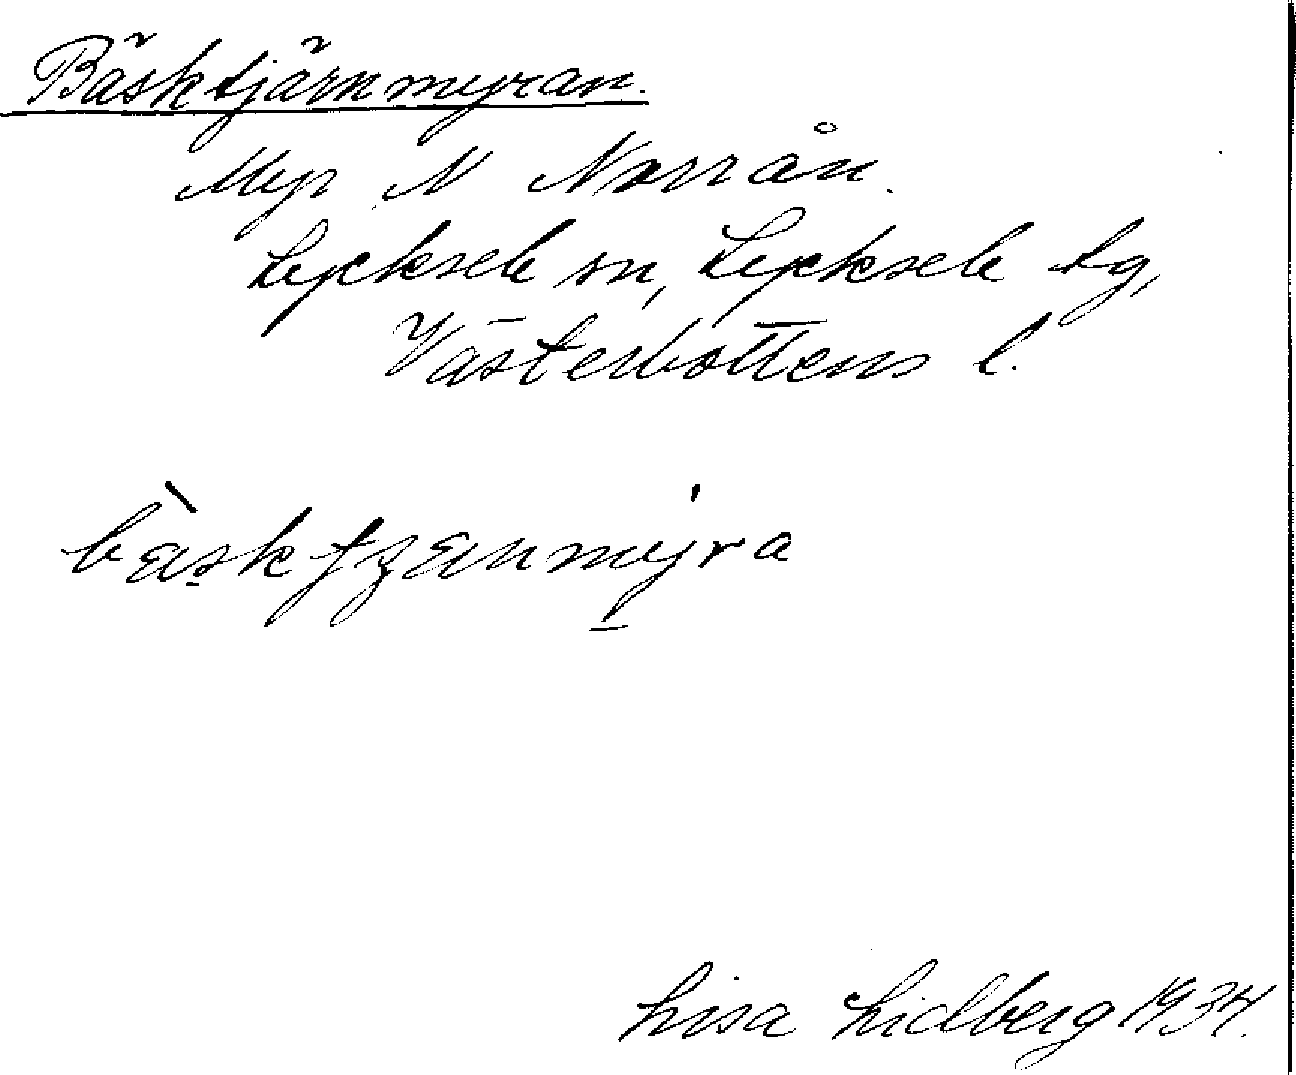 Bäsktjärnmyran.
Myr N Norrån.
Lycksele sn, Lycksele tg,
Västerbottens l.
Lisa Lidberg 1934.